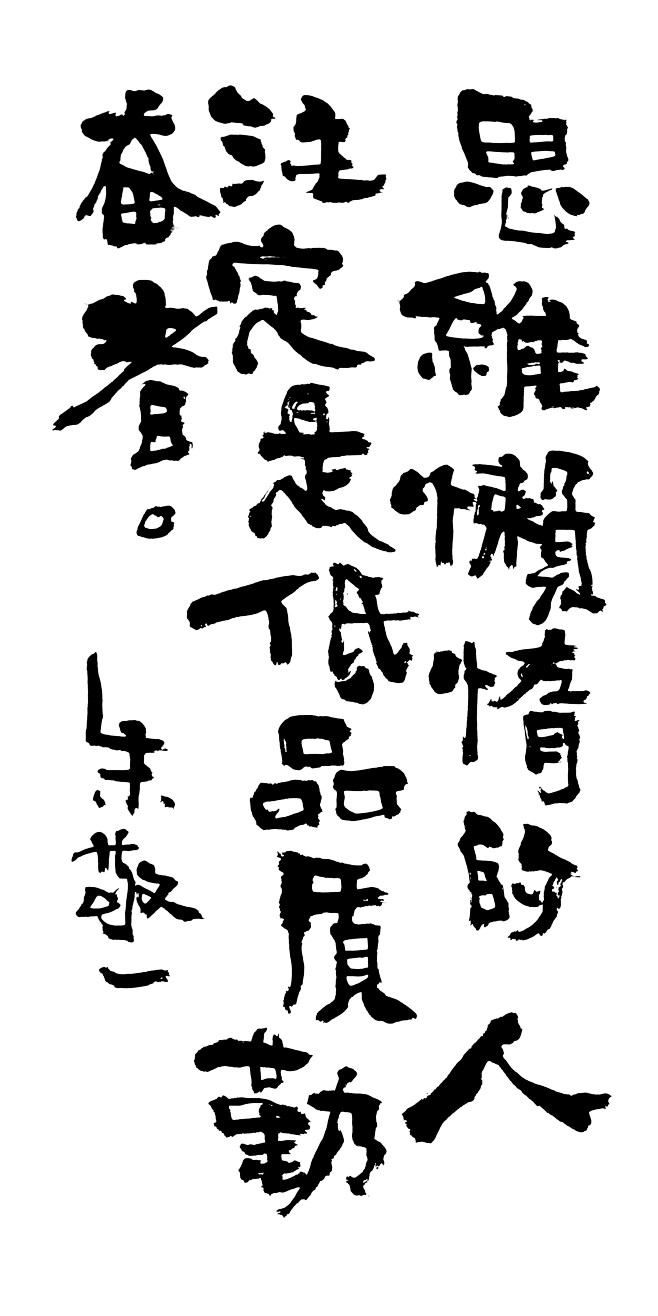 思維懶惰的人
注定是低品质勤
奋者。
朱敬一